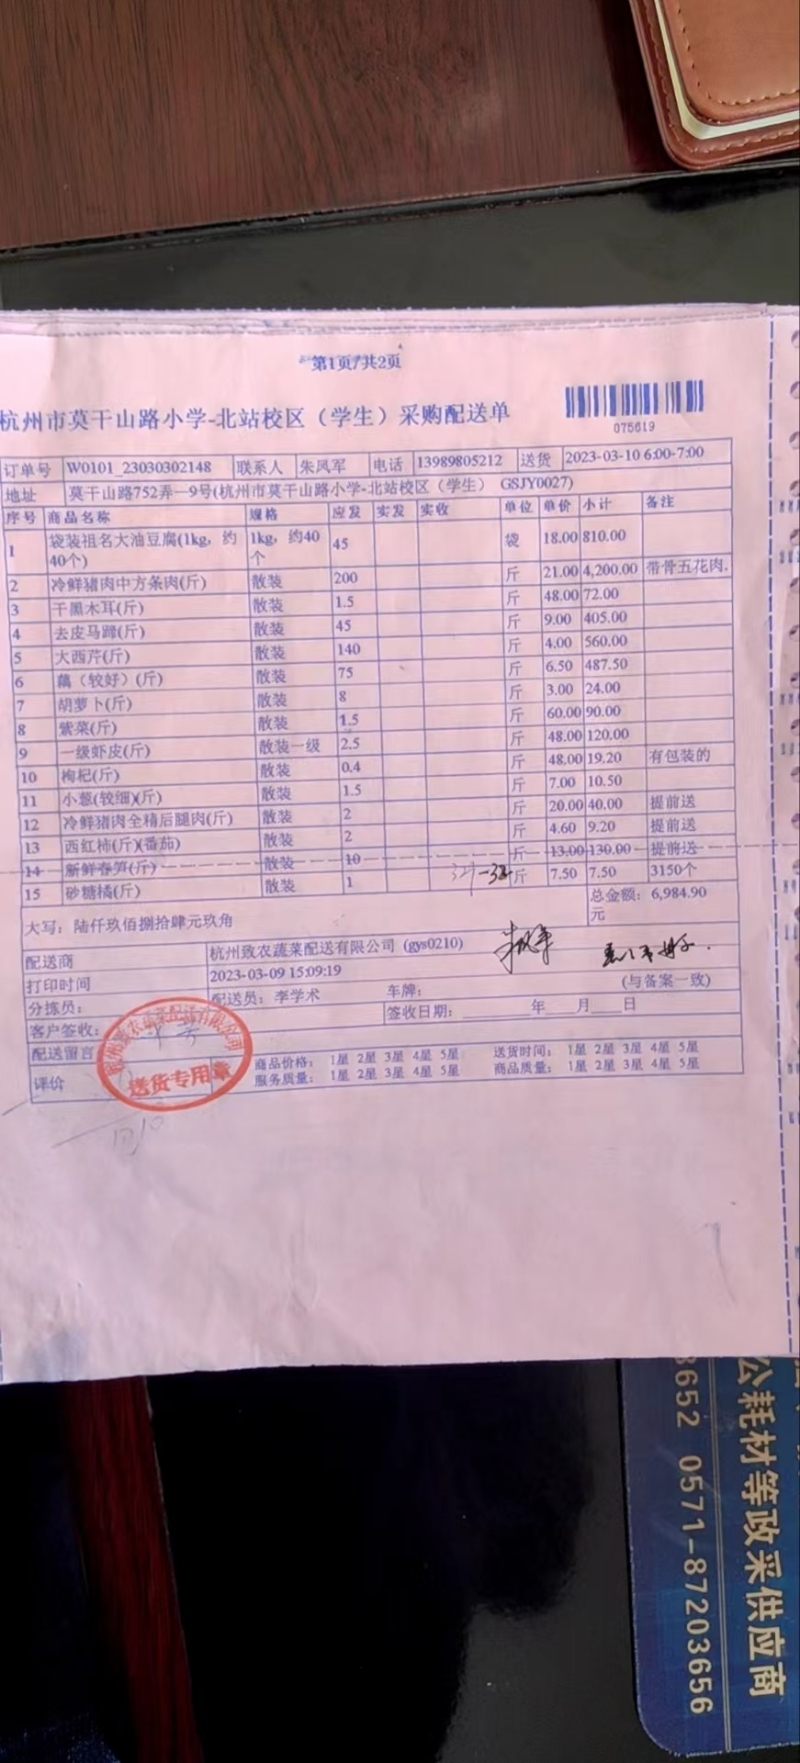 第1页/共2页
杭州市莫干山路小学-北站校区（学生）采购配送单
075619
订单号 W0101_23030302148 联系人 朱凤军 电话 13989805212 送货 2023-03-10 6:00-7:00
地址 莫干山路752弄一9号(杭州市莫干山路小学-北站校区（学生） GSJY0027)
序号 商品名称 规格 应发 实发 实收 单位 单价 小计 备注
1 袋装祖名大油豆腐(1kg，约40个) 1kg，约40个 45 袋 18.00 810.00
2 冷鲜猪肉中方条肉(斤) 散装 200 斤 21.00 4,200.00 带骨五花肉.
3 干黑木耳(斤) 散装 1.5 斤 48.00 72.00
4 去皮马蹄(斤) 散装 45 斤 9.00 405.00
5 大西芹(斤) 散装 140 斤 4.00 560.00
6 藕（较好）(斤) 散装 75 斤 6.50 487.50
7 胡萝卜(斤) 散装 8 斤 3.00 24.00
8 紫菜(斤) 散装 1.5 斤 60.00 90.00
9 一级虾皮(斤) 散装一级 2.5 斤 48.00 120.00
10 枸杞(斤) 散装 0.4 斤 48.00 19.20 有包装的
11 小葱(较细)(斤) 散装 1.5 斤 7.00 10.50
12 冷鲜猪肉全精后腿肉(斤) 散装 2 斤 20.00 40.00 提前送
13 西红柿(斤)(番茄) 散装 2 斤 4.60 9.20 提前送
14 新鲜春笋(斤) 散装 10 斤 13.00 130.00 提前送
15 砂糖橘(斤) 散装 1 斤 7.50 7.50 3150个
总金额：6,984.90元
大写：陆仟玖佰捌拾肆元玖角
配送商 杭州致农蔬菜配送有限公司 (gys0210)
打印时间 2023-03-09 15:09:19 (与备案一致)
分拣员： 配送员：李学术 车牌：
客户签收： 签收日期：________年___月___日
配送留言
评价 商品价格： 1星 2星 3星 4星 5星 送货时间： 1星 2星 3星 4星 5星
服务质量： 1星 2星 3星 4星 5星 商品质量： 1星 2星 3星 4星 5星
送货专用章
公耗材等政采供应商
3652 0571-87203656